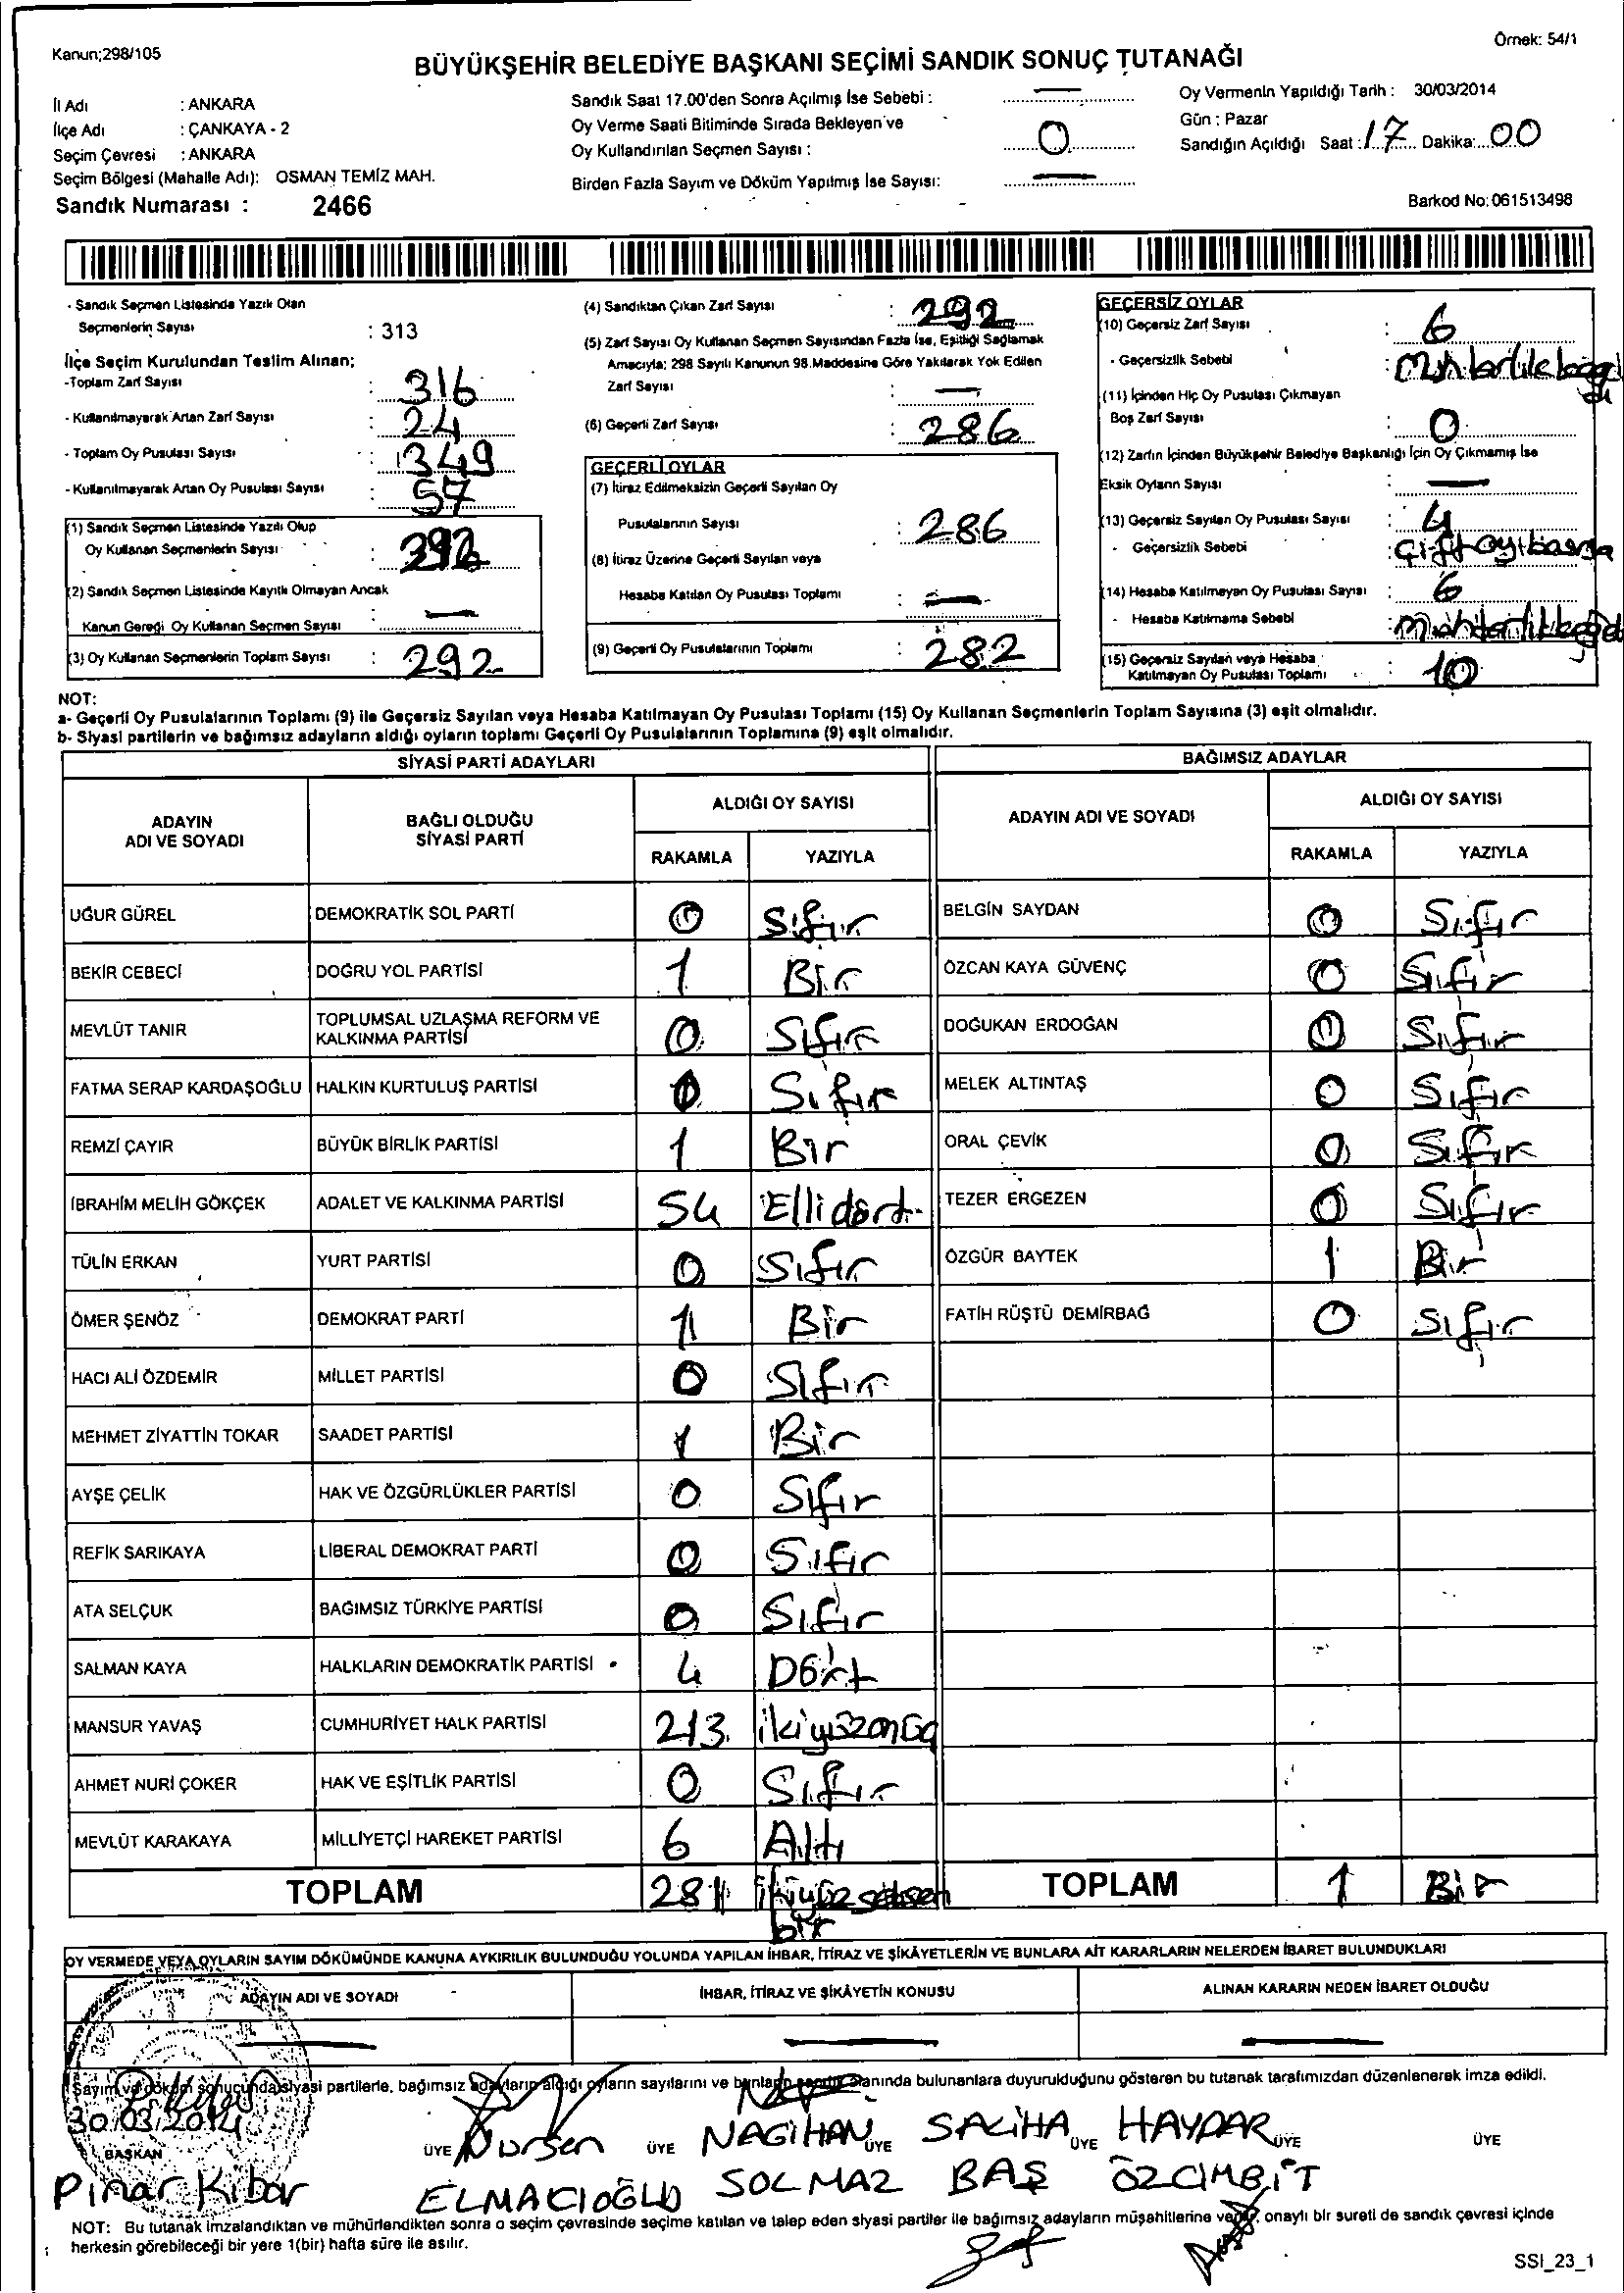 Kanun;298/105
Örnek: 54/1
BÜYÜKŞEHİR BELEDİYE BAŞKANI SEÇİMİ SANDIK SONUÇ TUTANAĞI
İl Adı : ANKARA
İlçe Adı : ÇANKAYA - 2
Seçim Çevresi : ANKARA
Seçim Bölgesi (Mahalle Adı): OSMAN TEMİZ MAH.
Sandık Numarası : 2466
Sandık Saat 17.00'den Sonra Açılmış İse Sebebi : —
Oy Verme Saati Bitiminde Sırada Bekleyen ve
Oy Kullandırılan Seçmen Sayısı : 0
Birden Fazla Sayım ve Döküm Yapılmış İse Sayısı: —
Oy Vermenin Yapıldığı Tarih : 30/03/2014
Gün : Pazar
Sandığın Açıldığı Saat : 17 Dakika: 00
Barkod No: 061513498
- Sandık Seçmen Listesinde Yazılı Olan
Seçmenlerin Sayısı : 313
İlçe Seçim Kurulundan Teslim Alınan;
-Toplam Zarf Sayısı : 316
- Kullanılmayarak Artan Zarf Sayısı : 24
- Toplam Oy Pusulası Sayısı : 349
- Kullanılmayarak Artan Oy Pusulası Sayısı : 57
(1) Sandık Seçmen Listesinde Yazılı Olup
Oy Kullanan Seçmenlerin Sayısı : 292
(2) Sandık Seçmen Listesinde Kayıtlı Olmayan Ancak
Kanun Gereği Oy Kullanan Seçmen Sayısı —
(3) Oy Kullanan Seçmenlerin Toplam Sayısı : 292
(4) Sandıktan Çıkan Zarf Sayısı : 292
(5) Zarf Sayısı Oy Kullanan Seçmen Sayısından Fazla İse, Eşitliği Sağlamak
Amacıyla; 298 Sayılı Kanunun 98.Maddesine Göre Yakılarak Yok Edilen
Zarf Sayısı : —
(6) Geçerli Zarf Sayısı : 286
GEÇERLİ OYLAR
(7) İtiraz Edilmeksizin Geçerli Sayılan Oy
Pusulalarının Sayısı : 286
(8) İtiraz Üzerine Geçerli Sayılan veya
Hesaba Katılan Oy Pusulası Toplamı : —
(9) Geçerli Oy Pusulalarının Toplamı : 282
GEÇERSİZ OYLAR
(10) Geçersiz Zarf Sayısı : 6
- Geçersizlik Sebebi :
(11) İçinden Hiç Oy Pusulası Çıkmayan
Boş Zarf Sayısı : 0
(12) Zarfın İçinden Büyükşehir Belediye Başkanlığı İçin Oy Çıkmamış İse
Eksik Oyların Sayısı : —
(13) Geçersiz Sayılan Oy Pusulası Sayısı : 4
- Geçersizlik Sebebi : Çift oy
(14) Hesaba Katılmayan Oy Pusulası Sayısı : 6
- Hesaba Katılmama Sebebi :
(15) Geçersiz Sayılan veya Hesaba
Katılmayan Oy Pusulası Toplamı : 10
NOT:
a- Geçerli Oy Pusulalarının Toplamı (9) ile Geçersiz Sayılan veya Hesaba Katılmayan Oy Pusulası Toplamı (15) Oy Kullanan Seçmenlerin Toplam Sayısına (3) eşit olmalıdır.
b- Siyasi partilerin ve bağımsız adayların aldığı oyların toplamı Geçerli Oy Pusulalarının Toplamına (9) eşit olmalıdır.
SİYASİ PARTİ ADAYLARI
ADAYIN ADI VE SOYADI BAĞLI OLDUĞU SİYASİ PARTİ ALDIĞI OY SAYISI
RAKAMLA YAZIYLA
UĞUR GÜREL DEMOKRATİK SOL PARTİ 0 Sıfır
BEKİR CEBECİ DOĞRU YOL PARTİSİ 1 Bir
MEVLÜT TANIR TOPLUMSAL UZLAŞMA REFORM VE KALKINMA PARTİSİ 0 Sıfır
FATMA SERAP KARDAŞOĞLU HALKIN KURTULUŞ PARTİSİ 0 Sıfır
REMZİ ÇAYIR BÜYÜK BİRLİK PARTİSİ 1 Bir
İBRAHİM MELİH GÖKÇEK ADALET VE KALKINMA PARTİSİ 54 Ellidört
TÜLİN ERKAN YURT PARTİSİ 0 Sıfır
ÖMER ŞENÖZ DEMOKRAT PARTİ 1 Bir
HACI ALİ ÖZDEMİR MİLLET PARTİSİ 0 Sıfır
MEHMET ZİYATTİN TOKAR SAADET PARTİSİ 1 Bir
AYŞE ÇELİK HAK VE ÖZGÜRLÜKLER PARTİSİ 0 Sıfır
REFİK SARIKAYA LİBERAL DEMOKRAT PARTİ 0 Sıfır
ATA SELÇUK BAĞIMSIZ TÜRKİYE PARTİSİ 0 Sıfır
SALMAN KAYA HALKLARIN DEMOKRATİK PARTİSİ 4 Dört
MANSUR YAVAŞ CUMHURİYET HALK PARTİSİ 213
AHMET NURİ ÇOKER HAK VE EŞİTLİK PARTİSİ 0 Sıfır
MEVLÜT KARAKAYA MİLLİYETÇİ HAREKET PARTİSİ 6 Altı
TOPLAM 281 ikiyüzseksen
bir
BAĞIMSIZ ADAYLAR
ADAYIN ADI VE SOYADI ALDIĞI OY SAYISI
RAKAMLA YAZIYLA
BELGİN SAYDAN 0 Sıfır
ÖZCAN KAYA GÜVENÇ 0 Sıfır
DOĞUKAN ERDOĞAN 0 Sıfır
MELEK ALTINTAŞ 0 Sıfır
ORAL ÇEVİK 0 Sıfır
TEZER ERGEZEN 0 Sıfır
ÖZGÜR BAYTEK 1 Bir
FATİH RÜŞTÜ DEMİRBAĞ 0 Sıfır
TOPLAM 1 Bir
OY VERMEDE VEYA OYLARIN SAYIM DÖKÜMÜNDE KANUNA AYKIRILIK BULUNDUĞU YOLUNDA YAPILAN İHBAR, İTİRAZ VE ŞİKÂYETLERİN VE BUNLARA AİT KARARLARIN NELERDEN İBARET BULUNDUKLARI
ADAYIN ADI VE SOYADI İHBAR, İTİRAZ VE ŞİKÂYETİN KONUSU ALINAN KARARIN NEDEN İBARET OLDUĞU
— — —
Sayım ve döküm sonucunda siyasi partilerle, bağımsız adayların aldığı oyların sayılarını ve bunların sandık alanında bulunanlara duyurulduğunu gösteren bu tutanak tarafımızdan düzenlenerek imza edildi.
30.03.2014
BAŞKAN ÜYE ÜYE ÜYE ÜYE ÜYE ÜYE
Pınar Kibar
Nursen ELMACIOĞLU
NAGİHAN SOLMAZ
SALİHA BAŞ
HAYDAR ÖZCIMBIT
NOT: Bu tutanak imzalandıktan ve mühürlendikten sonra o seçim çevresinde seçime katılan ve talep eden siyasi partiler ile bağımsız adayların müşahitlerine verilir, onaylı bir sureti de sandık çevresi içinde
herkesin görebileceği bir yere 1(bir) hafta süre ile asılır.
SSI_23_1